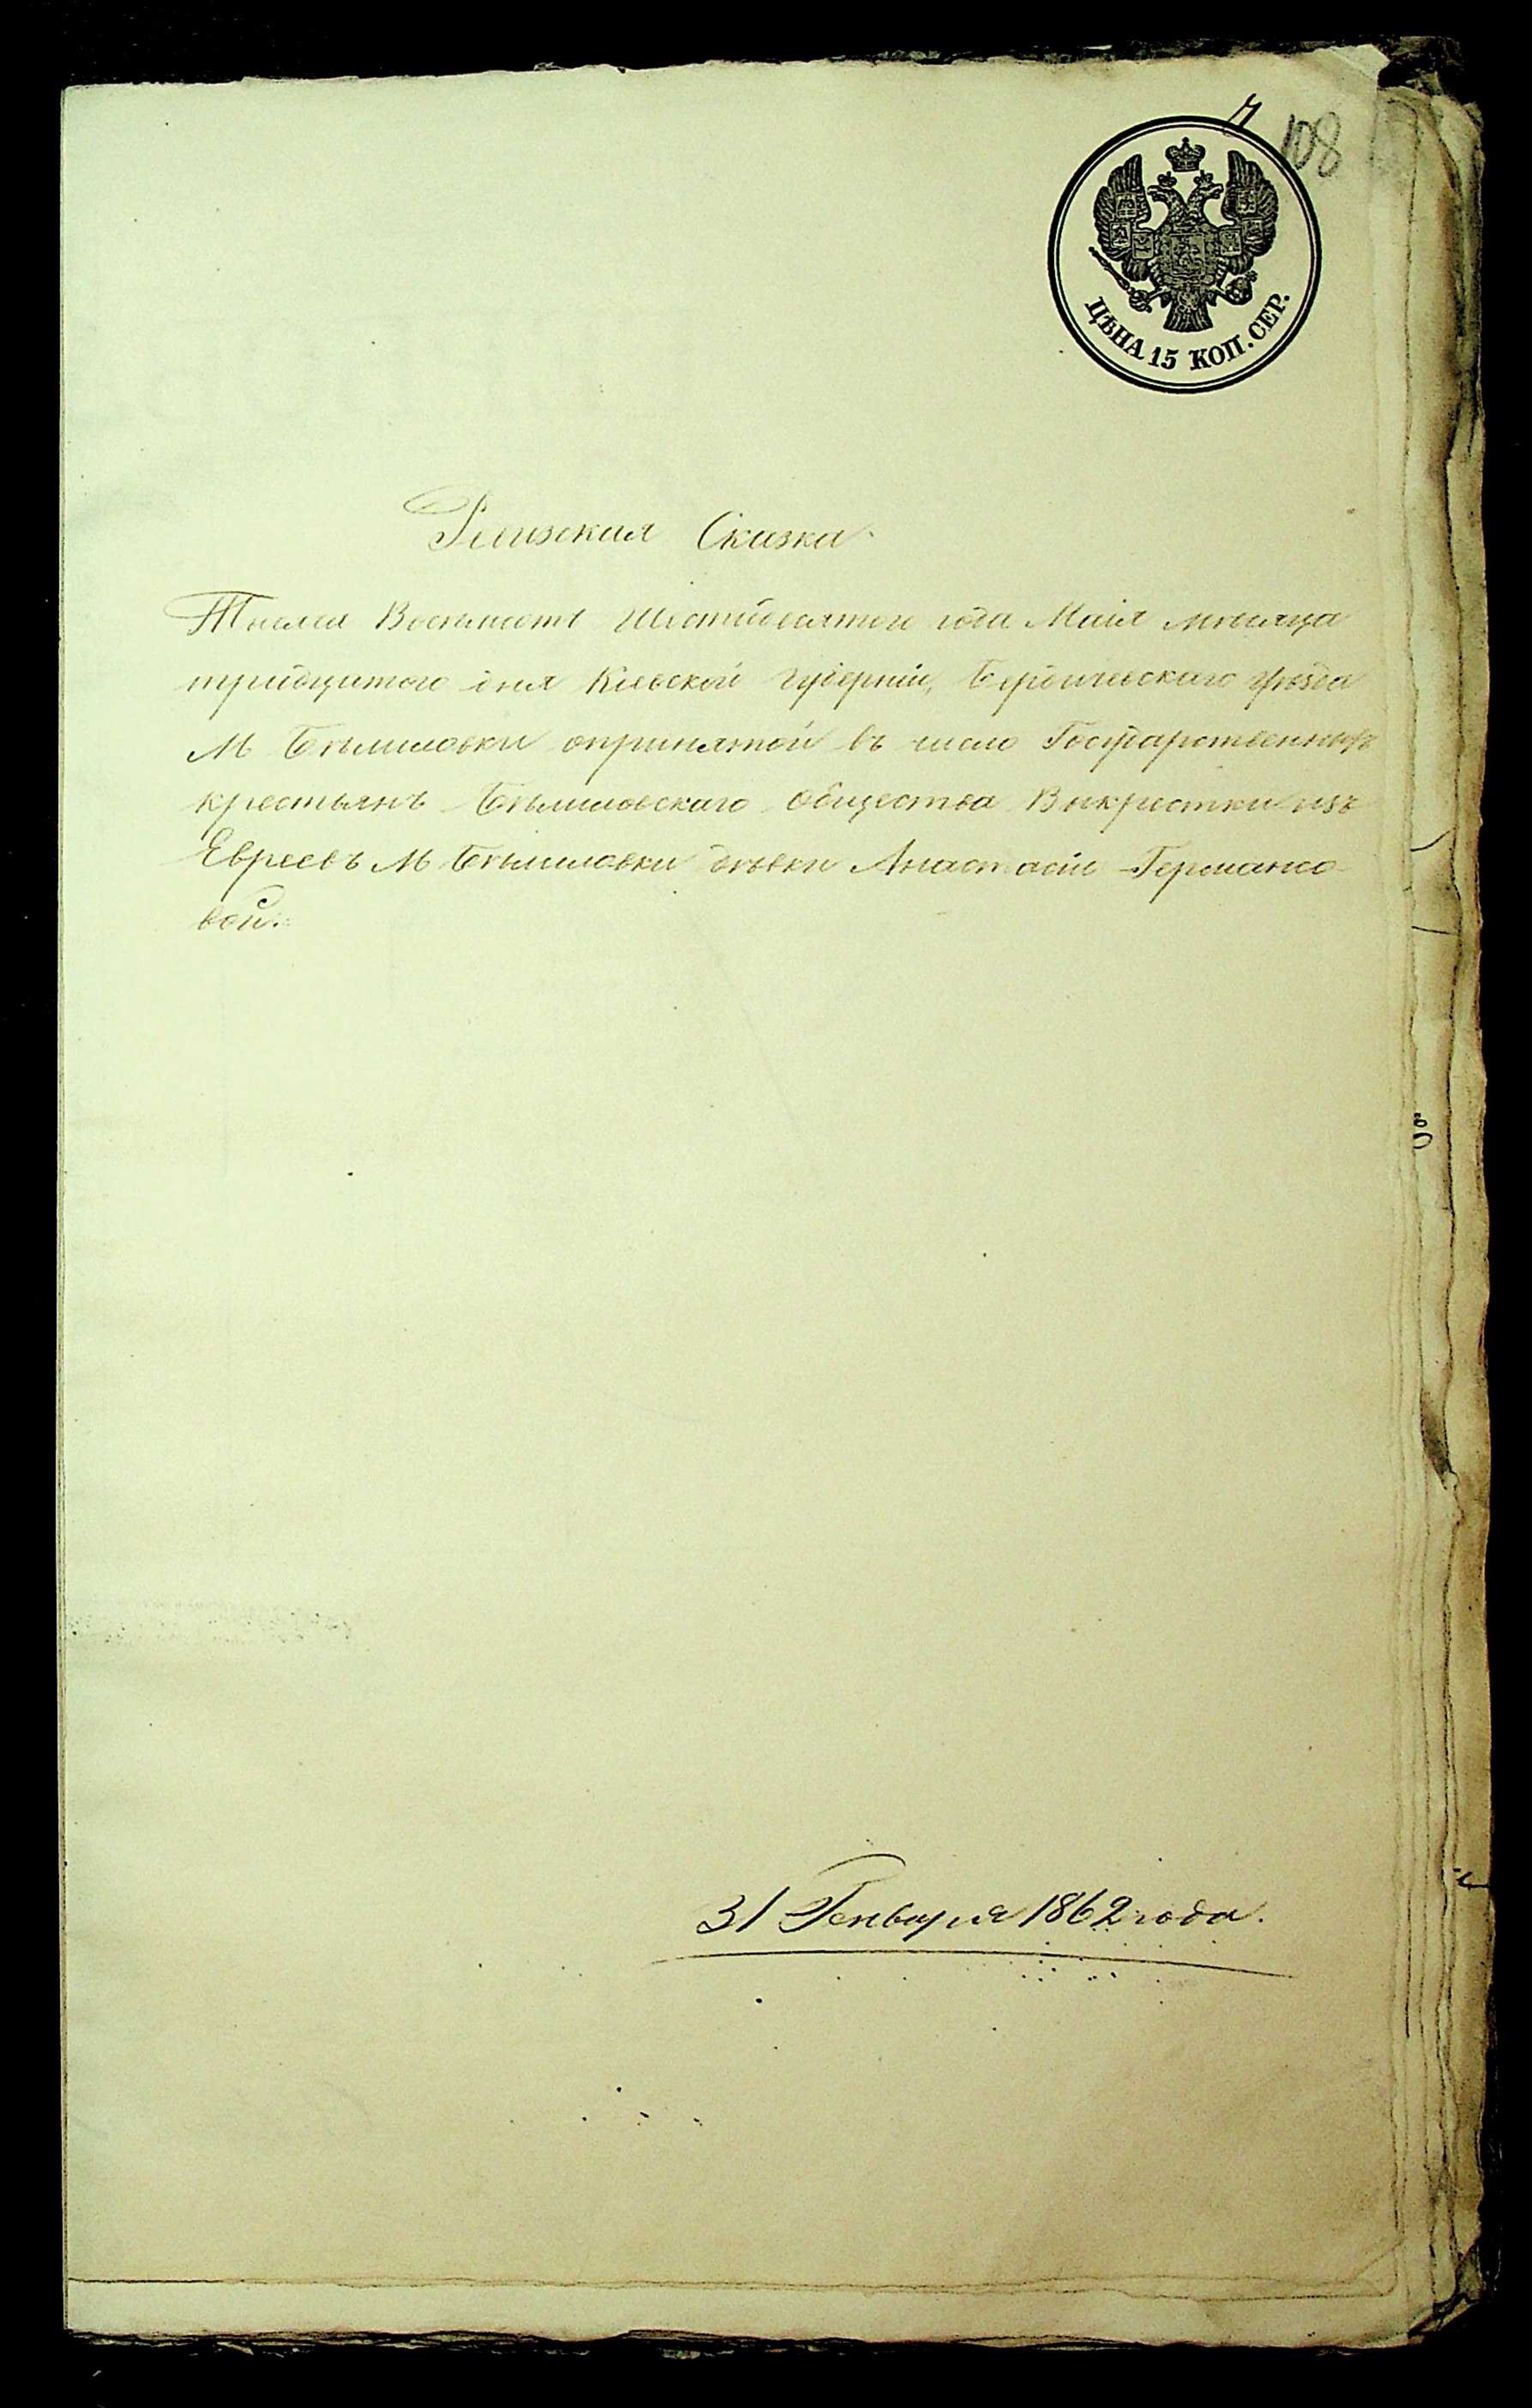 7
108
ЦѢНА 15 КОП. СЕР.
Ревизская Сказка.
Тысяча Восемьсотъ Шестидесятого года Маія мѣсяца
тридцатого дня Кіевской губерніи, Бердичевскаго уѣзда
М Бѣлиловки опринятой въ число Государственныхъ
крестьянъ Бѣлиловскаго общества Выкрестки изъ
Евреевъ М Бѣлиловки дѣвки Анастасіи Германо-
вой.
31 Генваря 1862 года.